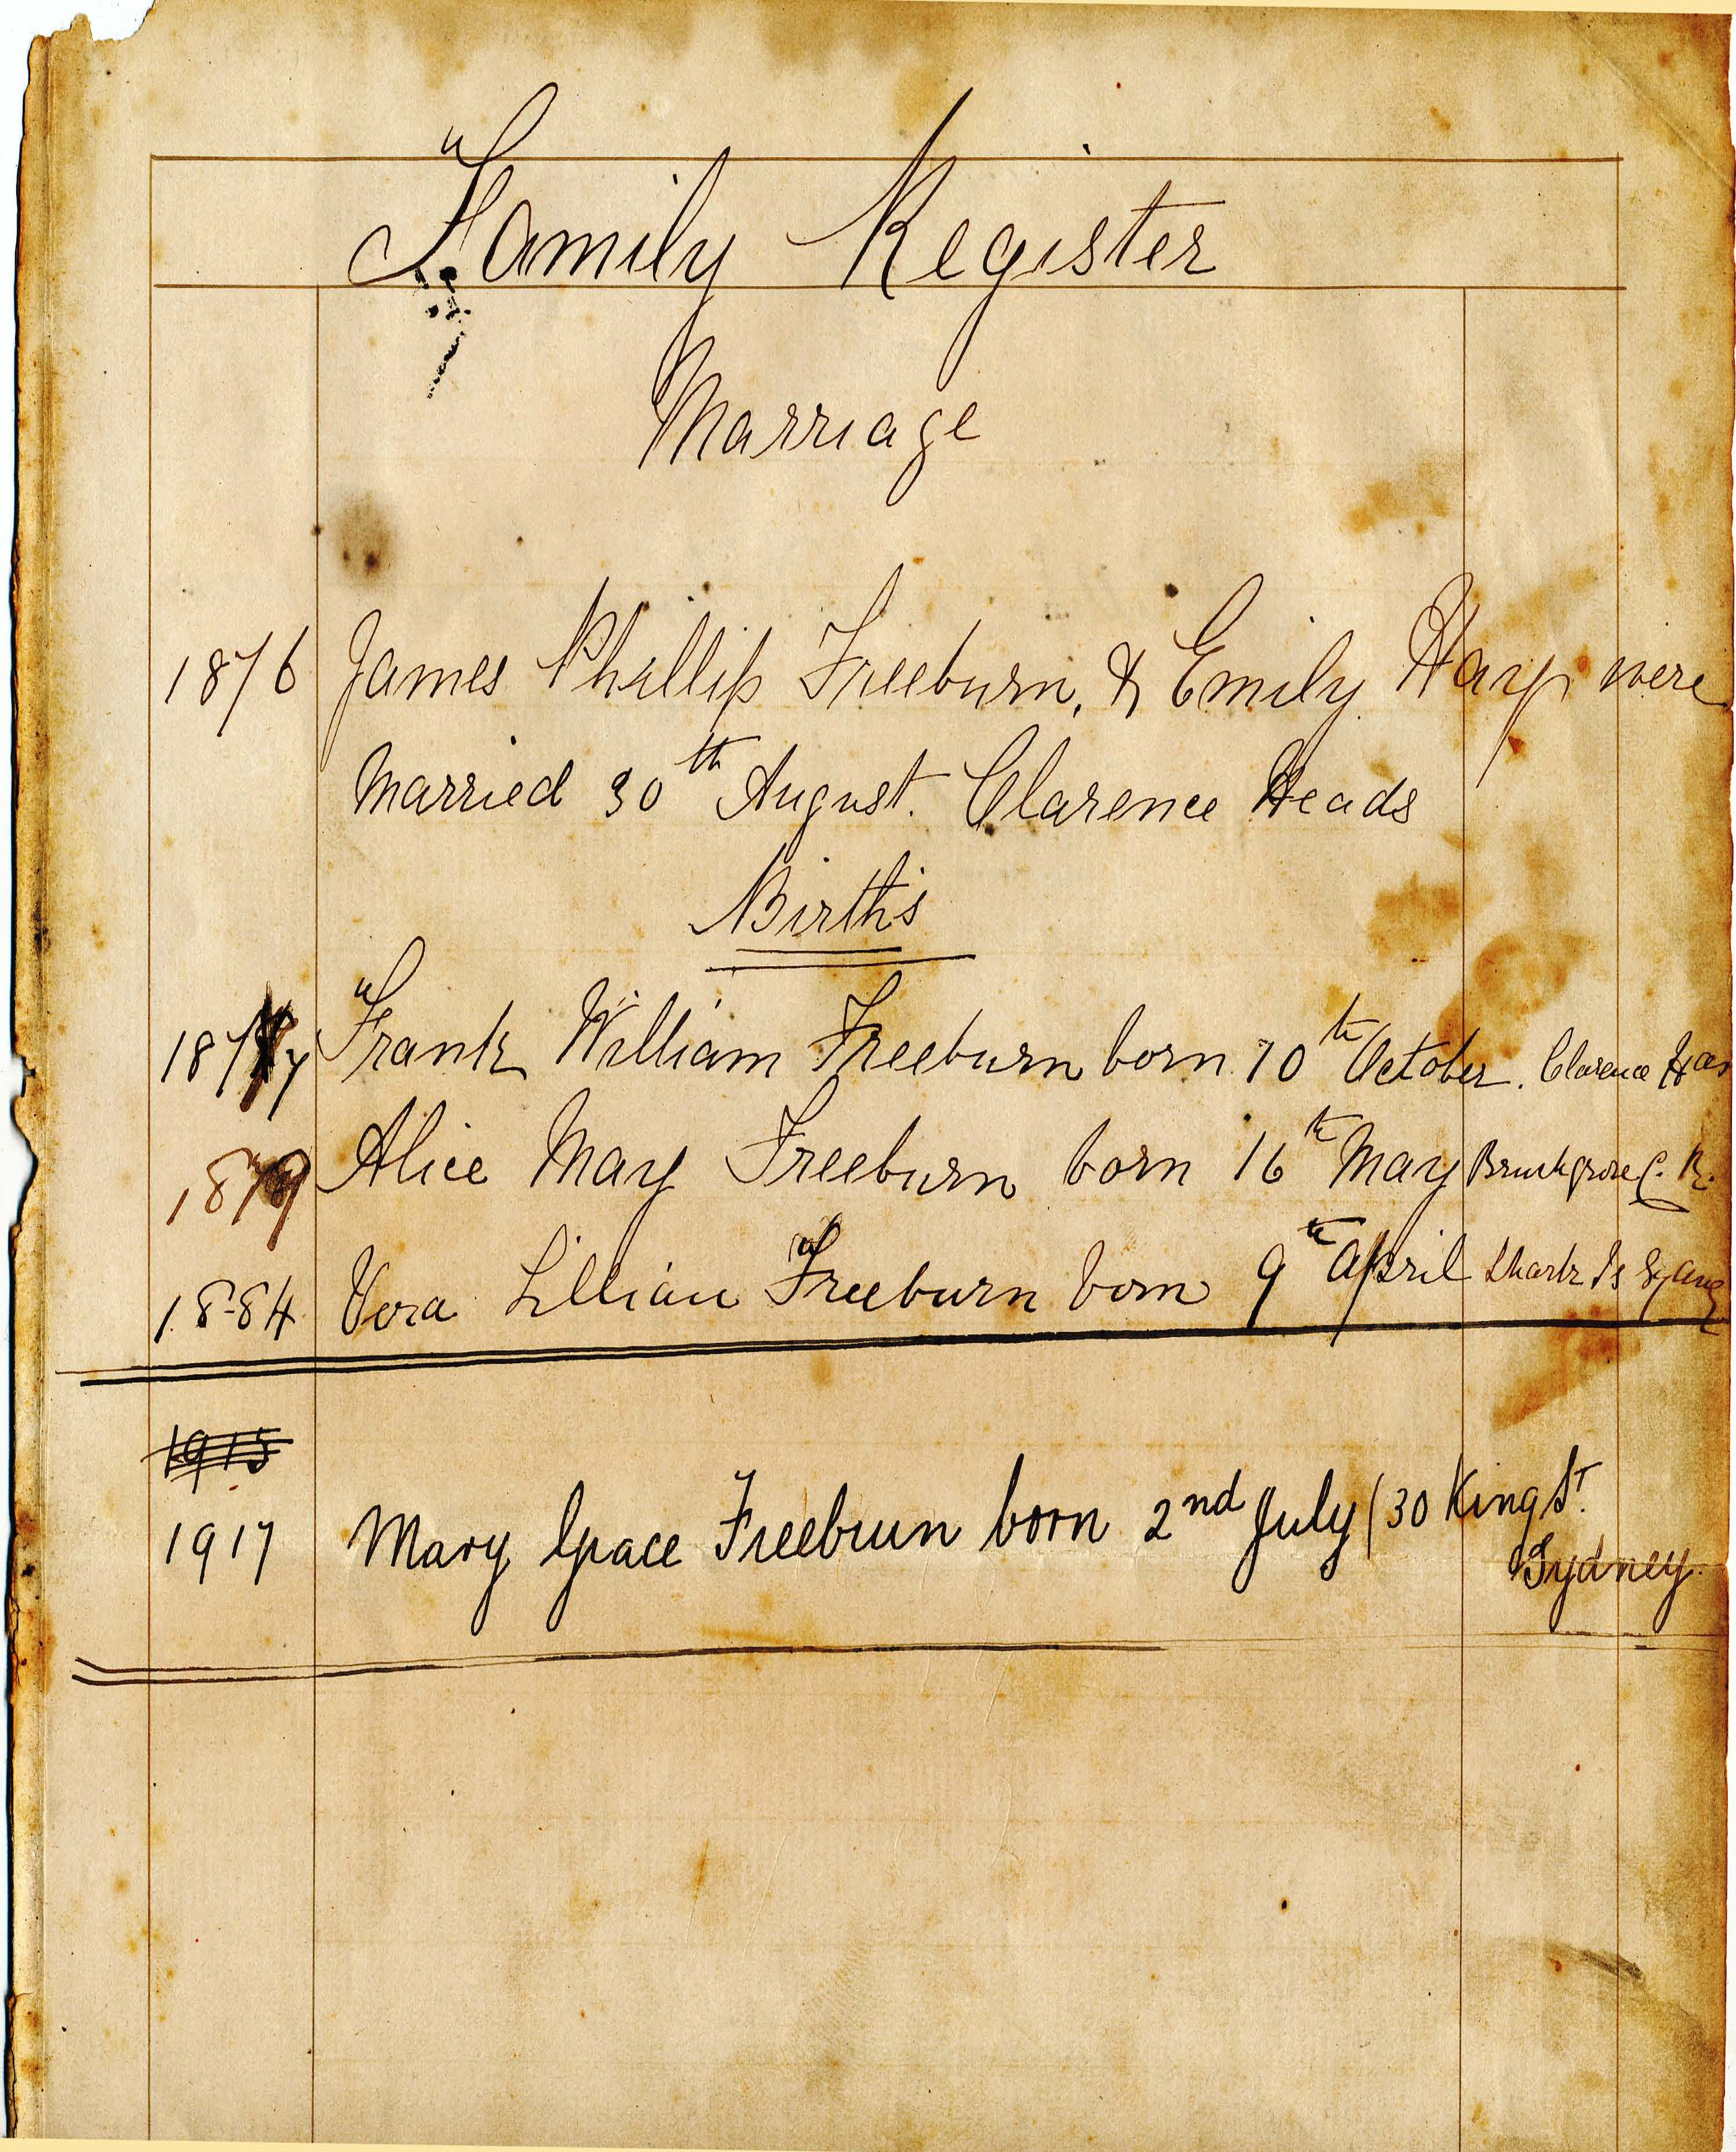 Family Register
Marriage
1876 James Phillip Freeburn, & Emily were
Married 30th August. Clarence Heads
Births
1877 Frank William Freeburn born 10th October. Clarence
1879 Alice May Freeburn born 16th May Brushgrove C. R.
1884 Vera Lillian Freeburn born 9th April Shark Is
1915
1917 Mary Grace Freeburn born 2nd July (30 King St.
Sydney.